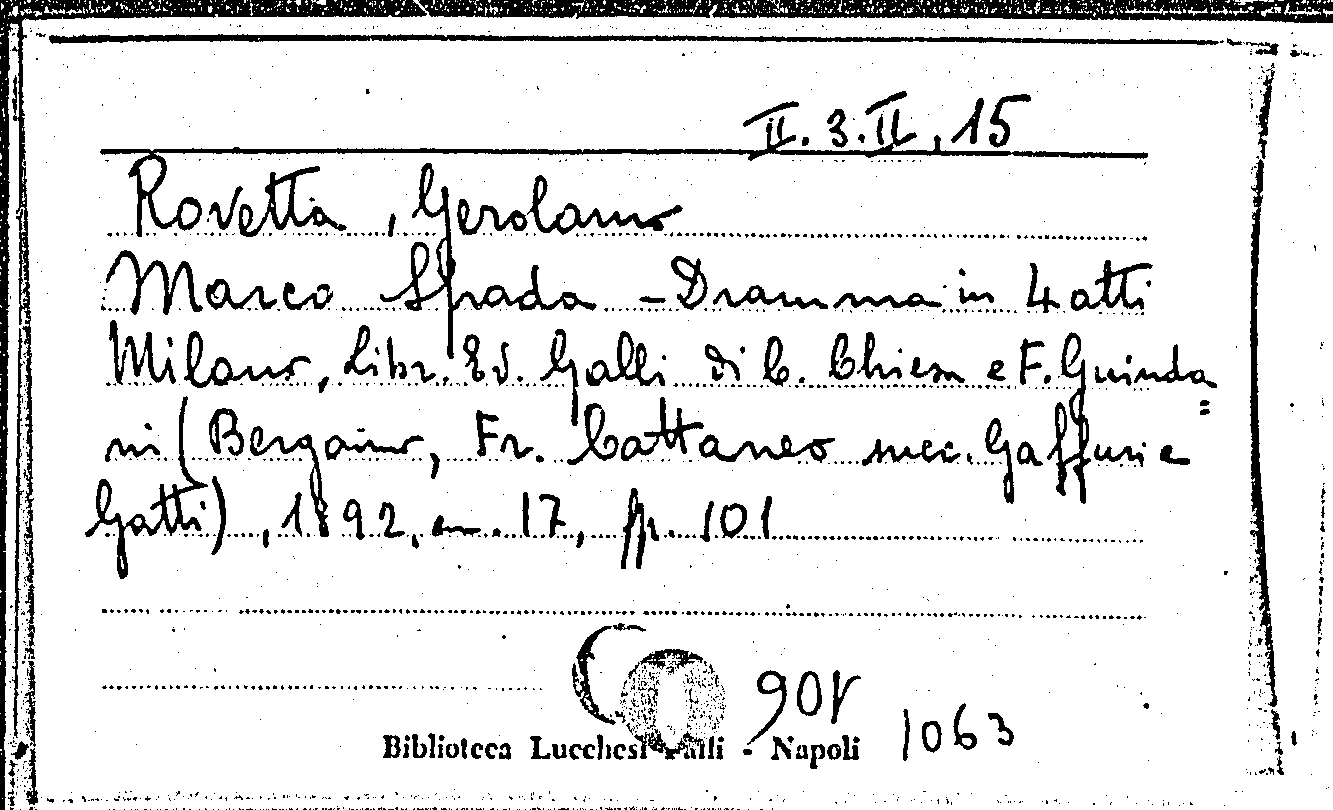 II.3.II,15
Rovetta, Gerolamo
Marco Spada - Dramma in 4 atti
Milano, Libr. Ed. Galli di C. Chiesa e F. Guinda=
ni (Bergamo, Fr. Cattaneo succ. Gaffuri e
Gatti), 1892, cm. 17, pp. 101
1063
Biblioteca Lucchesi Palli - Napoli